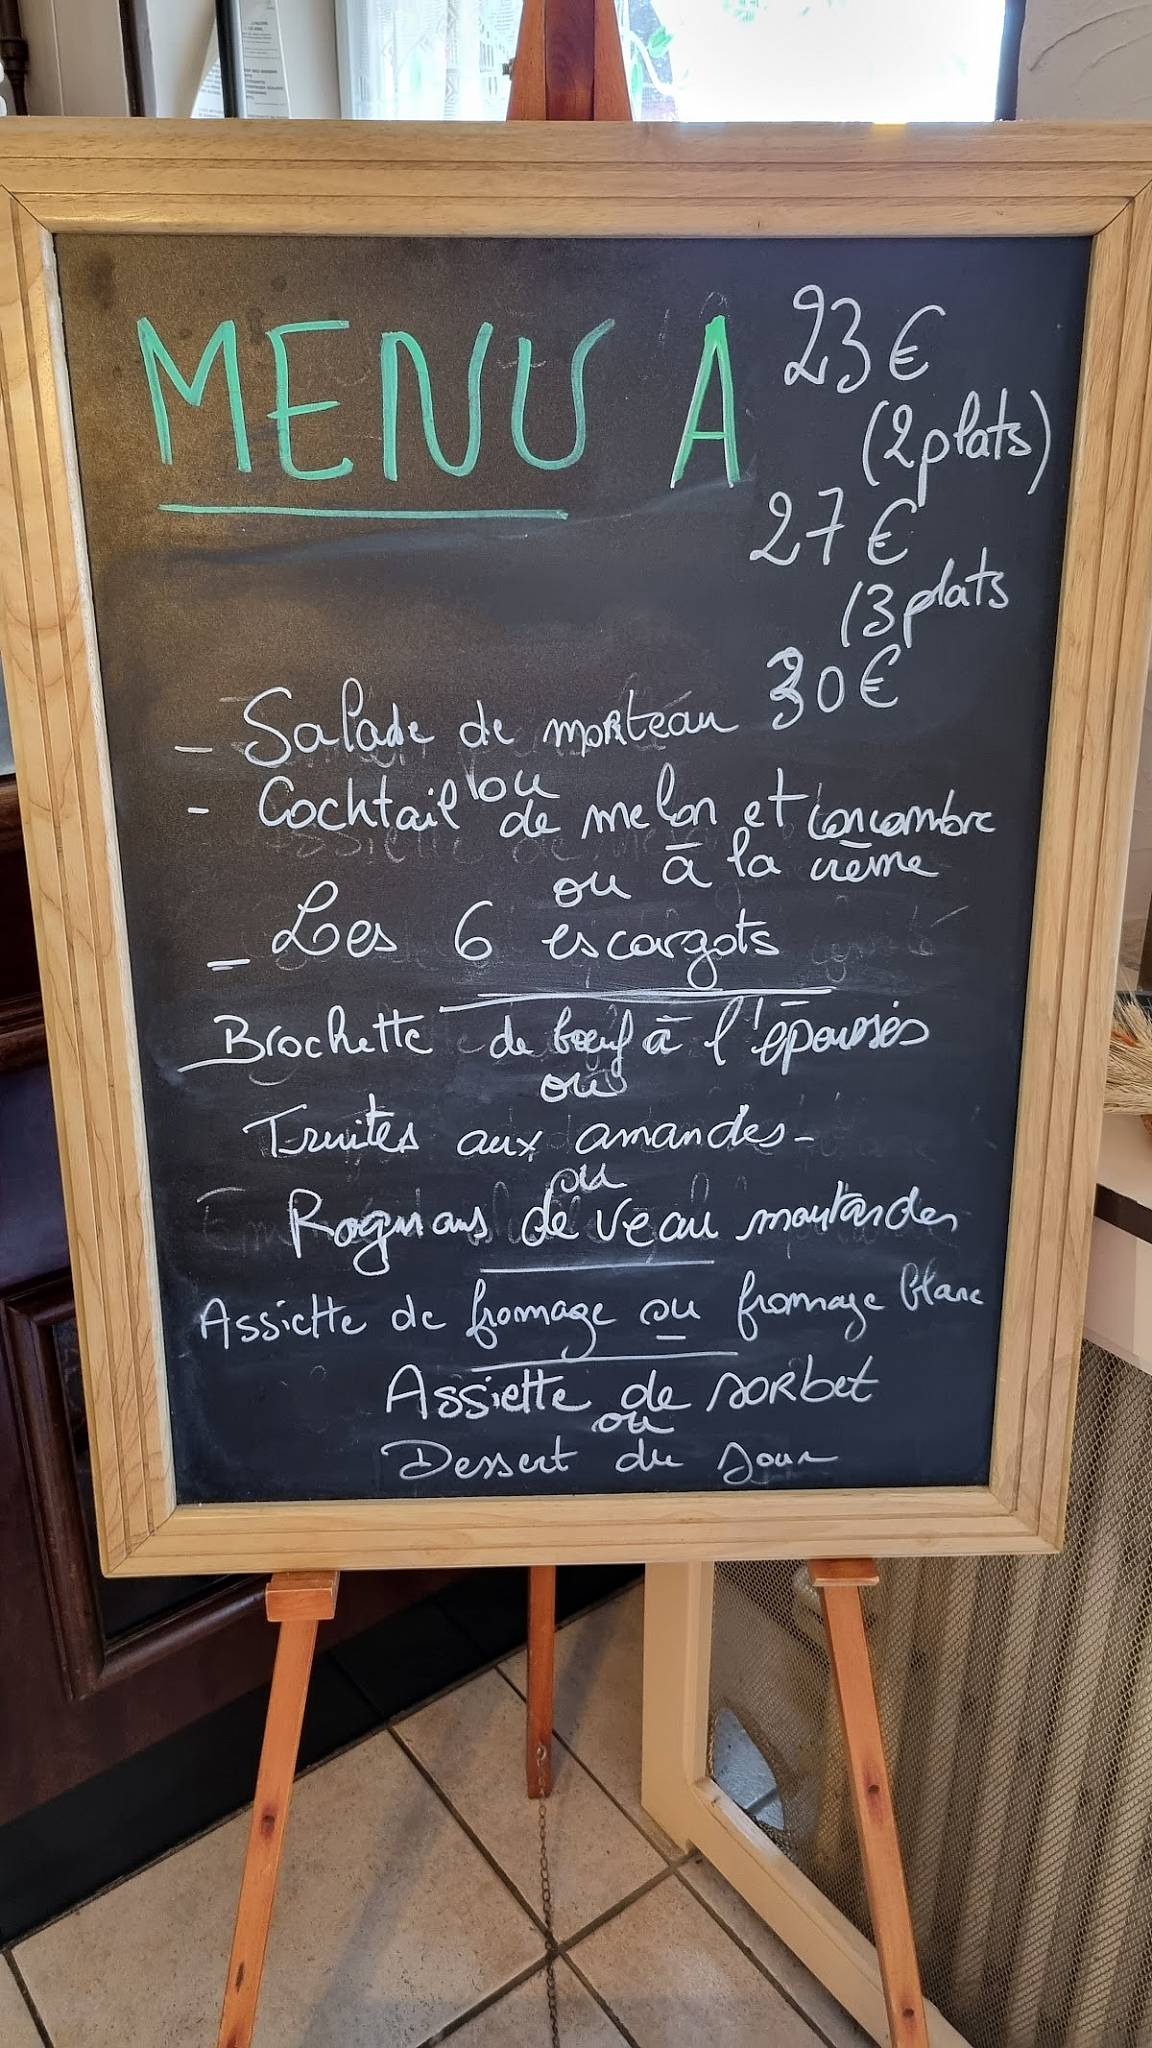 MENU A 23€
(2plats)
27€
(3plats
30€
- Salade de morteau
ou
- Cocktail de melon et concombre
à la crème
ou
- Les 6 escargots
Brochette de bœuf à l'époisses
ou
Truites aux amandes-
ou
Rognons de veau moutardes
Assiette de fromage ou fromage blanc
Assiette de sorbet
ou
Dessert du jour